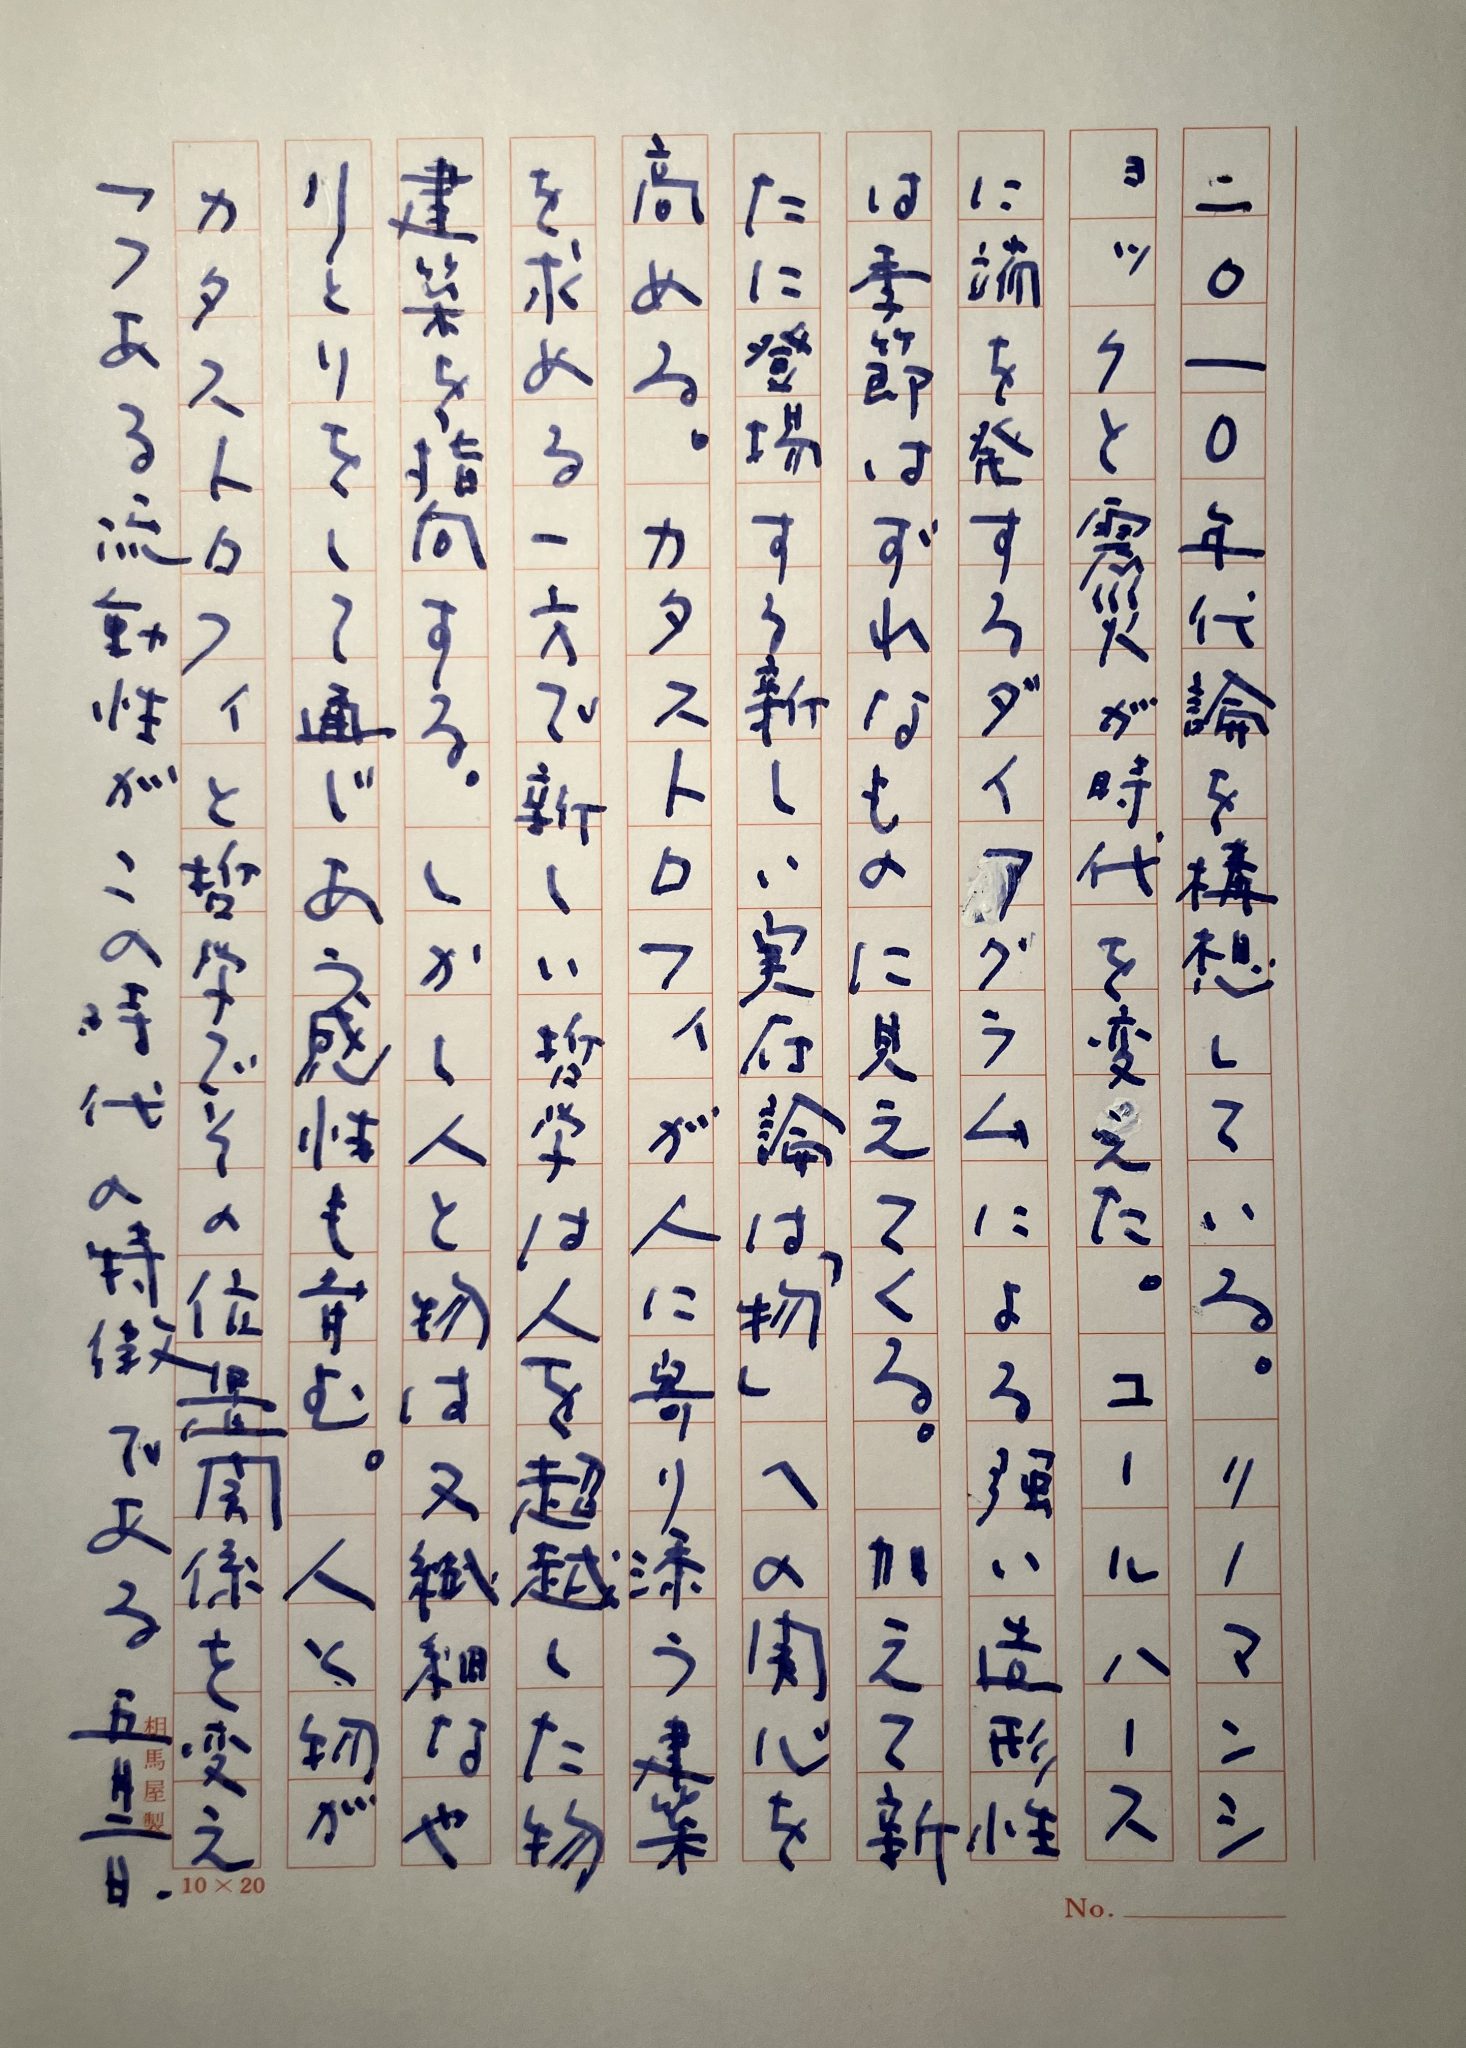 二〇一〇年代論を構想している。リーマンシ
ョックと震災が時代を変えた。ユールハース
に端を発するダイアグラムによる強い造形性
は季節はずれなものに見えてくる。加えて新
たに登場する新しい実在論は、「物」への関心を
高める。カタストロフィが人に寄り添う建築
を求める一方で新しい哲学は人を超越した物
建築を指向する。しかし人と物は又繊細なや
りとりをして通じあう感性も育む。人と物が
カタストロフィと哲学でその位置関係を変え
つつある流動性がこの時代の特徴である 五月二日.
相馬屋製
10×20
No.